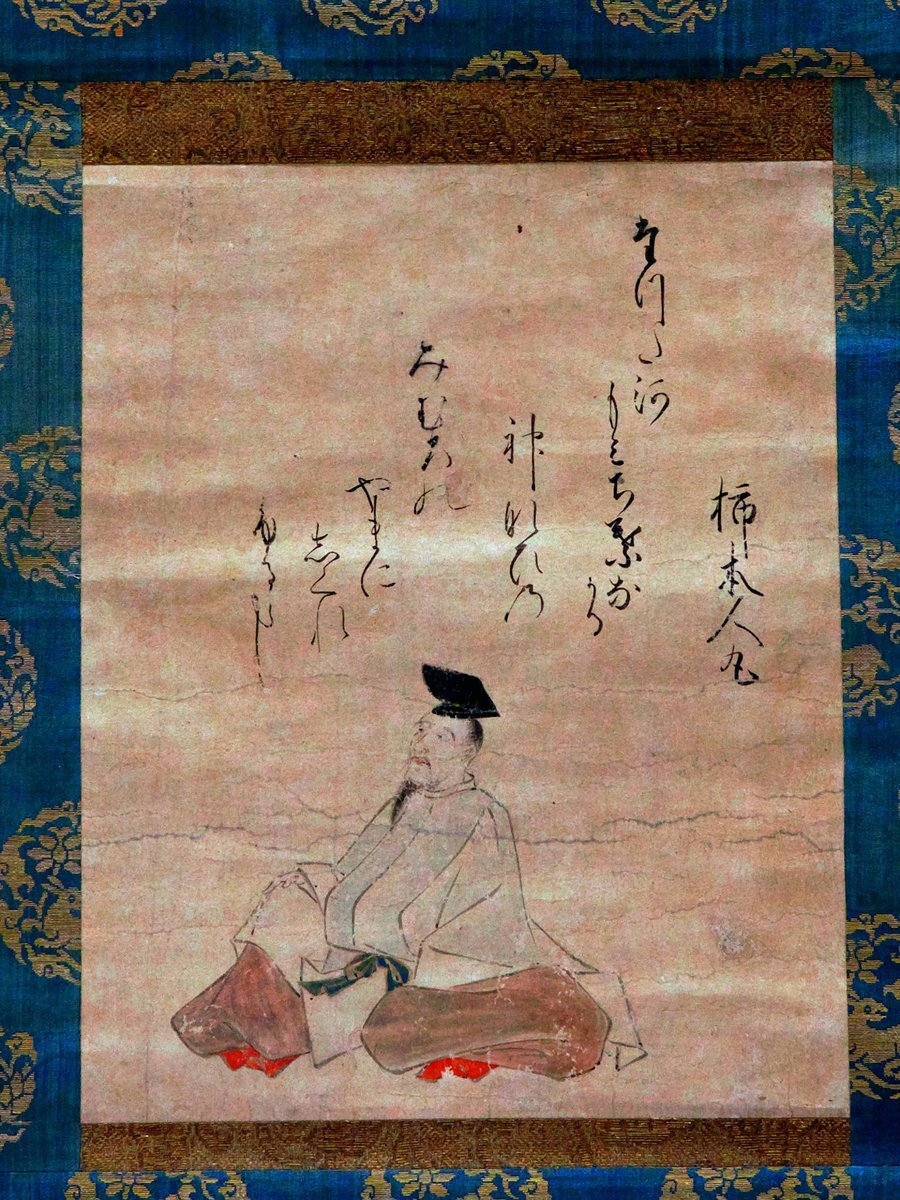 柿本人丸
たつた河
もみち葉な
かる
神なひの
みむろの
やまに
しくれ
ふるらし